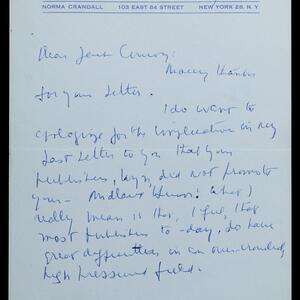 NORMA CRANDALL 103 EAST 84 STREET NEW YORK 28, N.Y.
Dear Jack Conroy:
Many thanks
for your letter.
I do want to
apologize for the implication in my
last letter to you that your
publishers, did not promote
your Midland Humor! What I
really mean is that, I feel, that
most publishers to-day, do have
great difficulties in an overcrowded,
high pressured field.